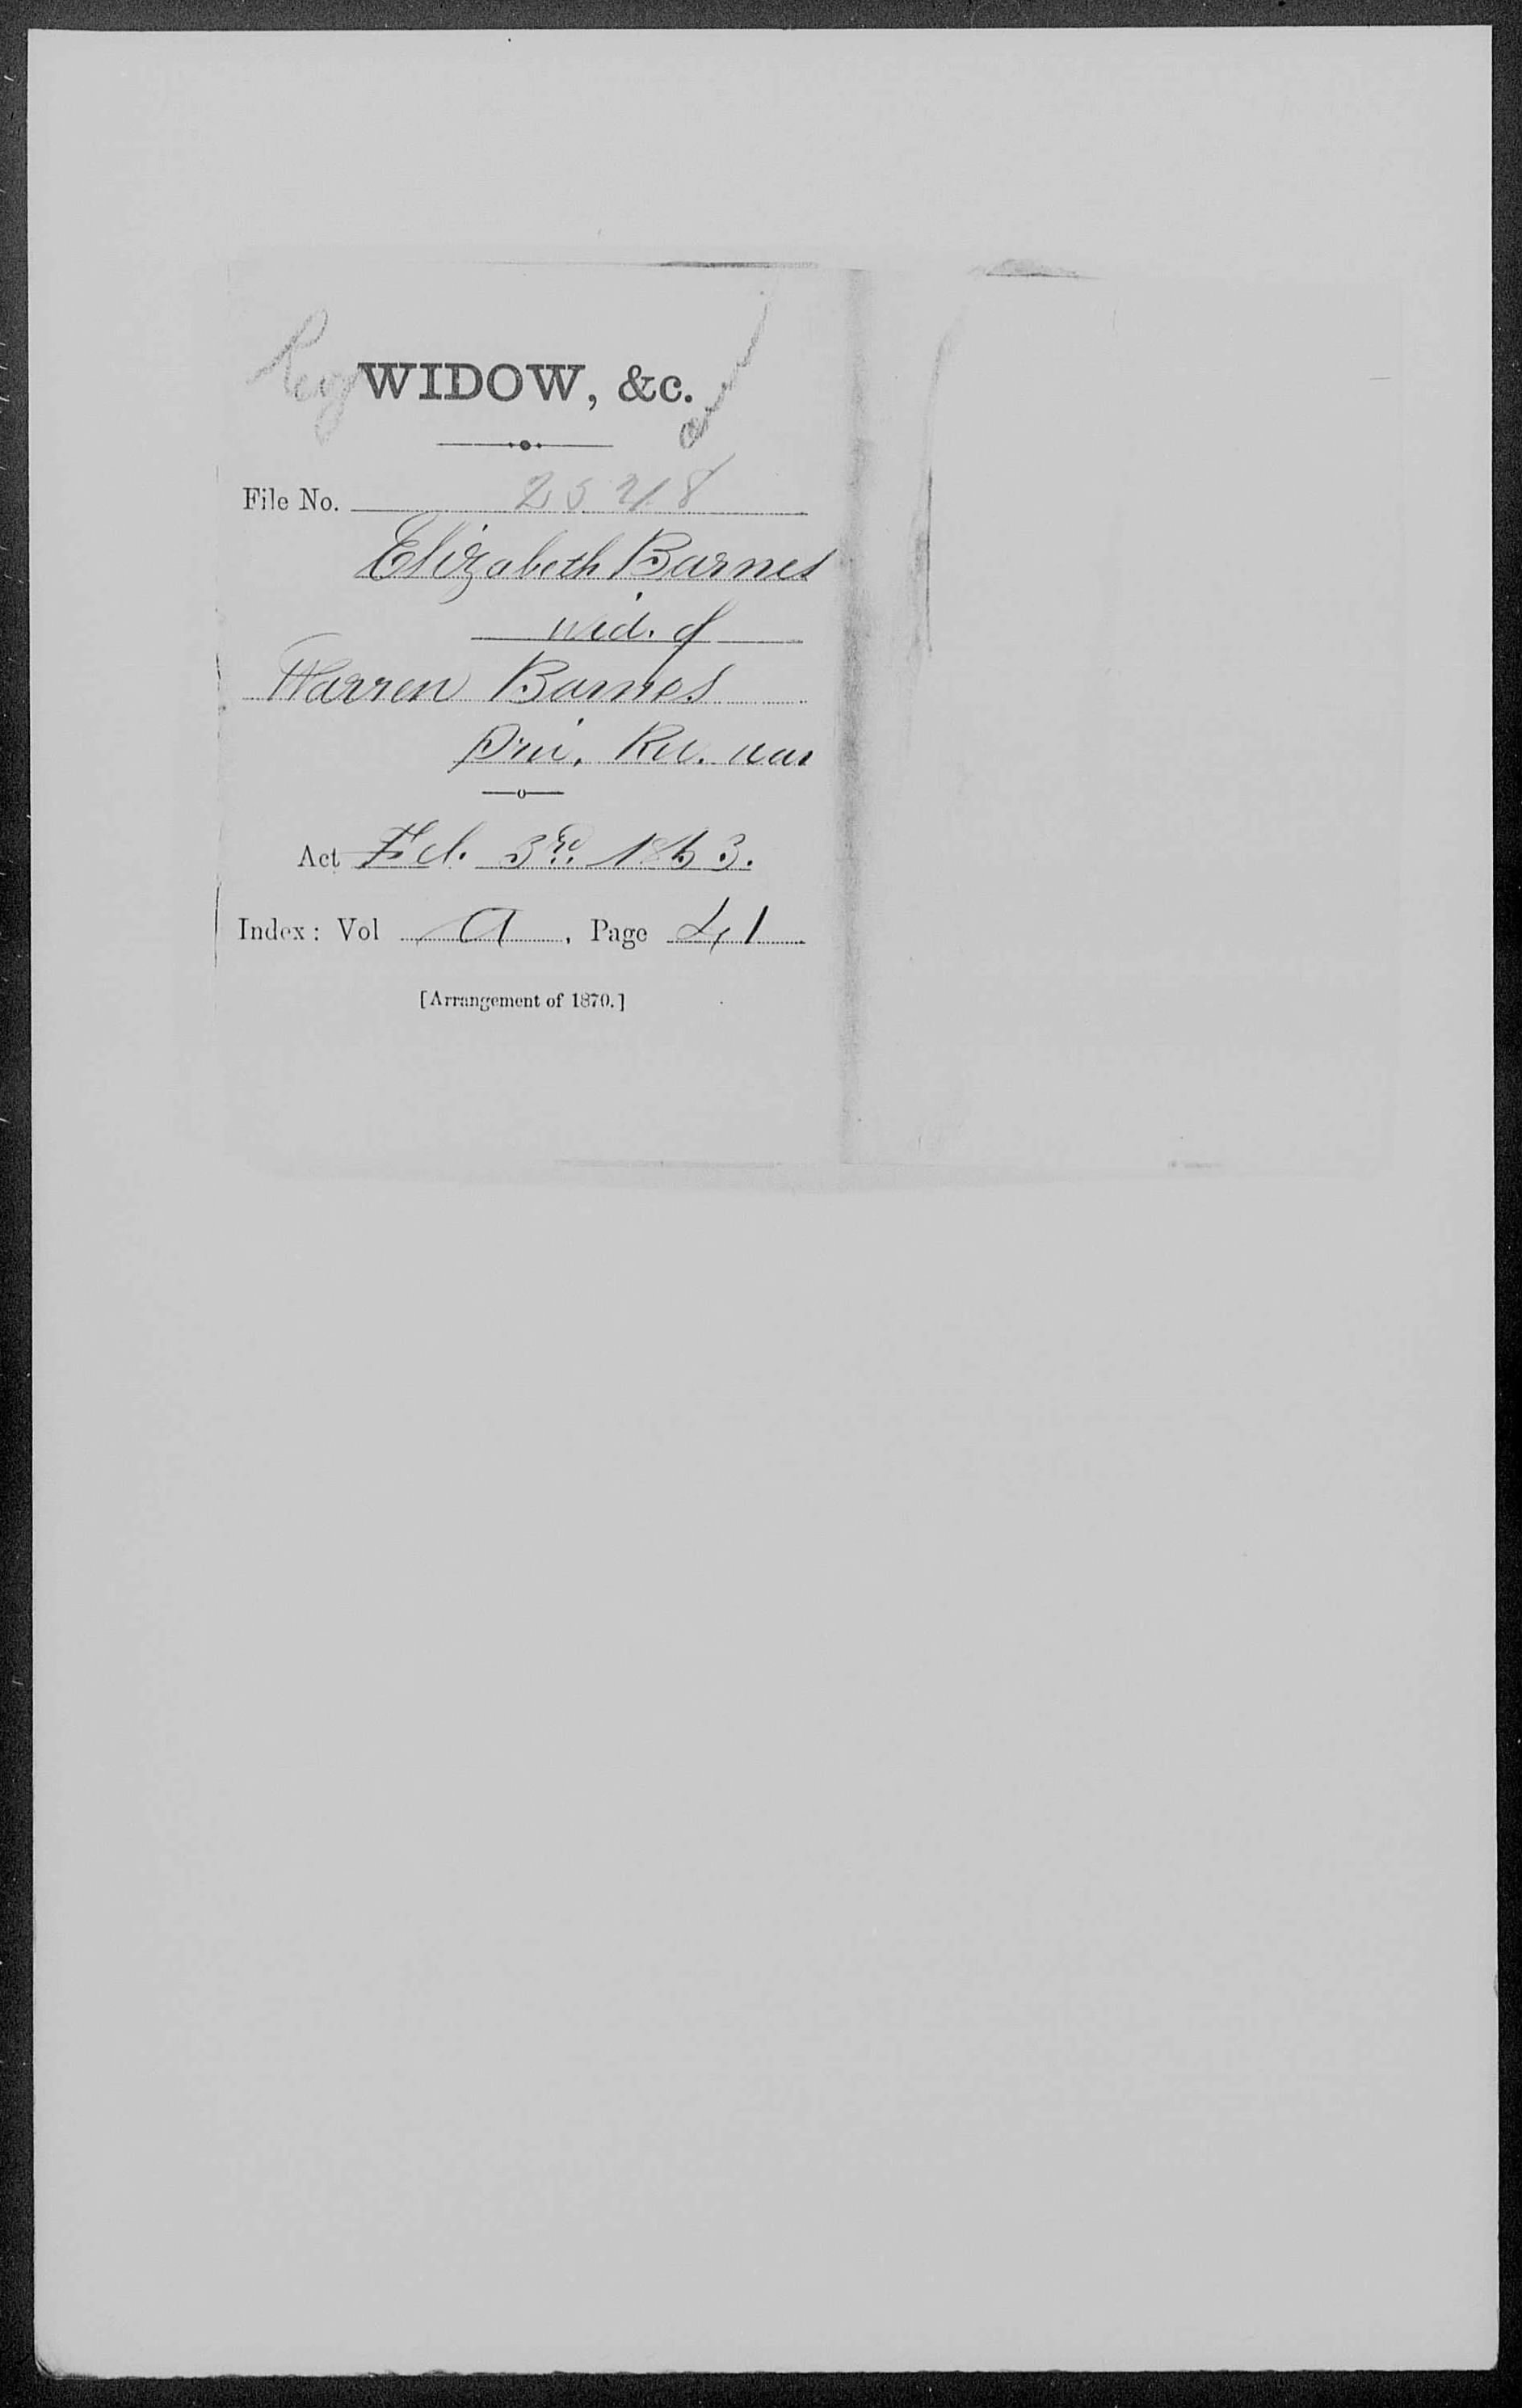 Reg WIDOW, &c.
File No. 2548
Elizabeth Barnes
wid. of
Warren Barnes
Pri. Rev. war
Act Feb. 3rd. 1853.
Index: Vol A, Page 41
[Arrangement of 1870.]